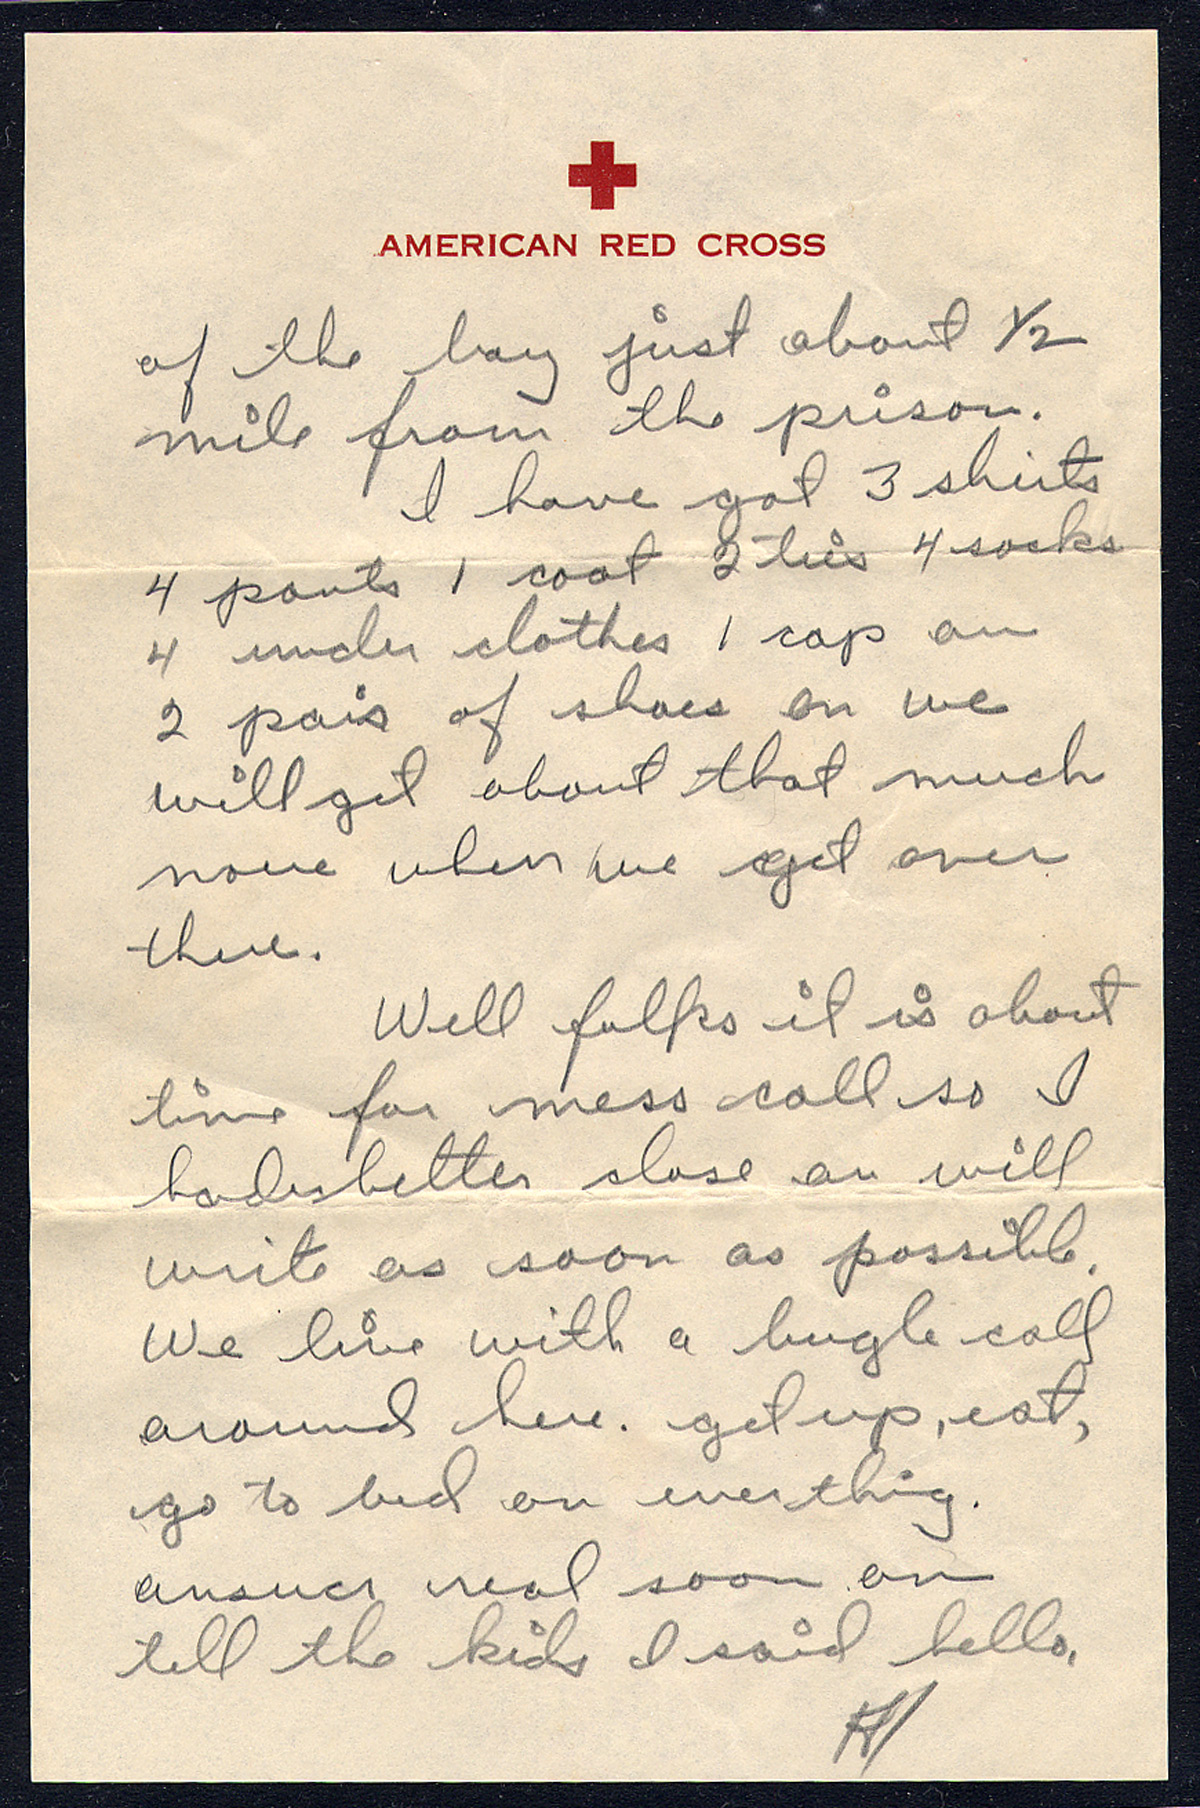 AMERICAN RED CROSS
of the bay just about 1/2
mile from the prison.
I have got 3 shirts
4 pants 1 coat 2 ties 4 socks
4 under clothes 1 cap an
2 pais of shoes an we
will get about that much
more when we get over
there.
Well folks it is about
time for mess call so I
better close an will
write as soon as possible.
We live with a bugle call
around here. get up, eat,
go to bed an everthing.
answer real soon an
tell the kids I said hello.